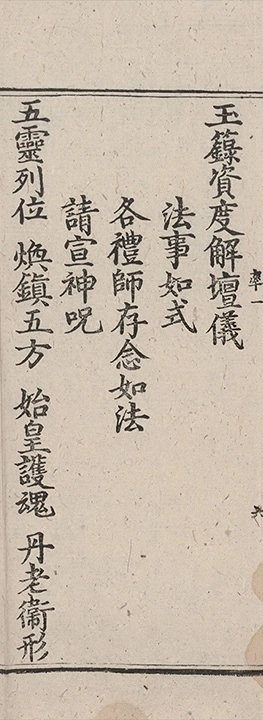 玉籙資度解壇儀
法事如式
各禮師存念如法
請宣神呪
五靈列位 煥鎮五方 始皇護魂 丹老衛形